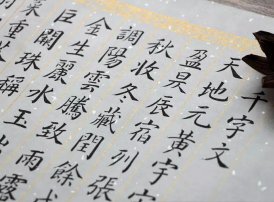 千字文
天地元黃宇
盈昃辰宿列張
秋收冬藏閏餘成
調陽雲騰致雨露
金生麗水玉出
巨闕珠稱
菜重